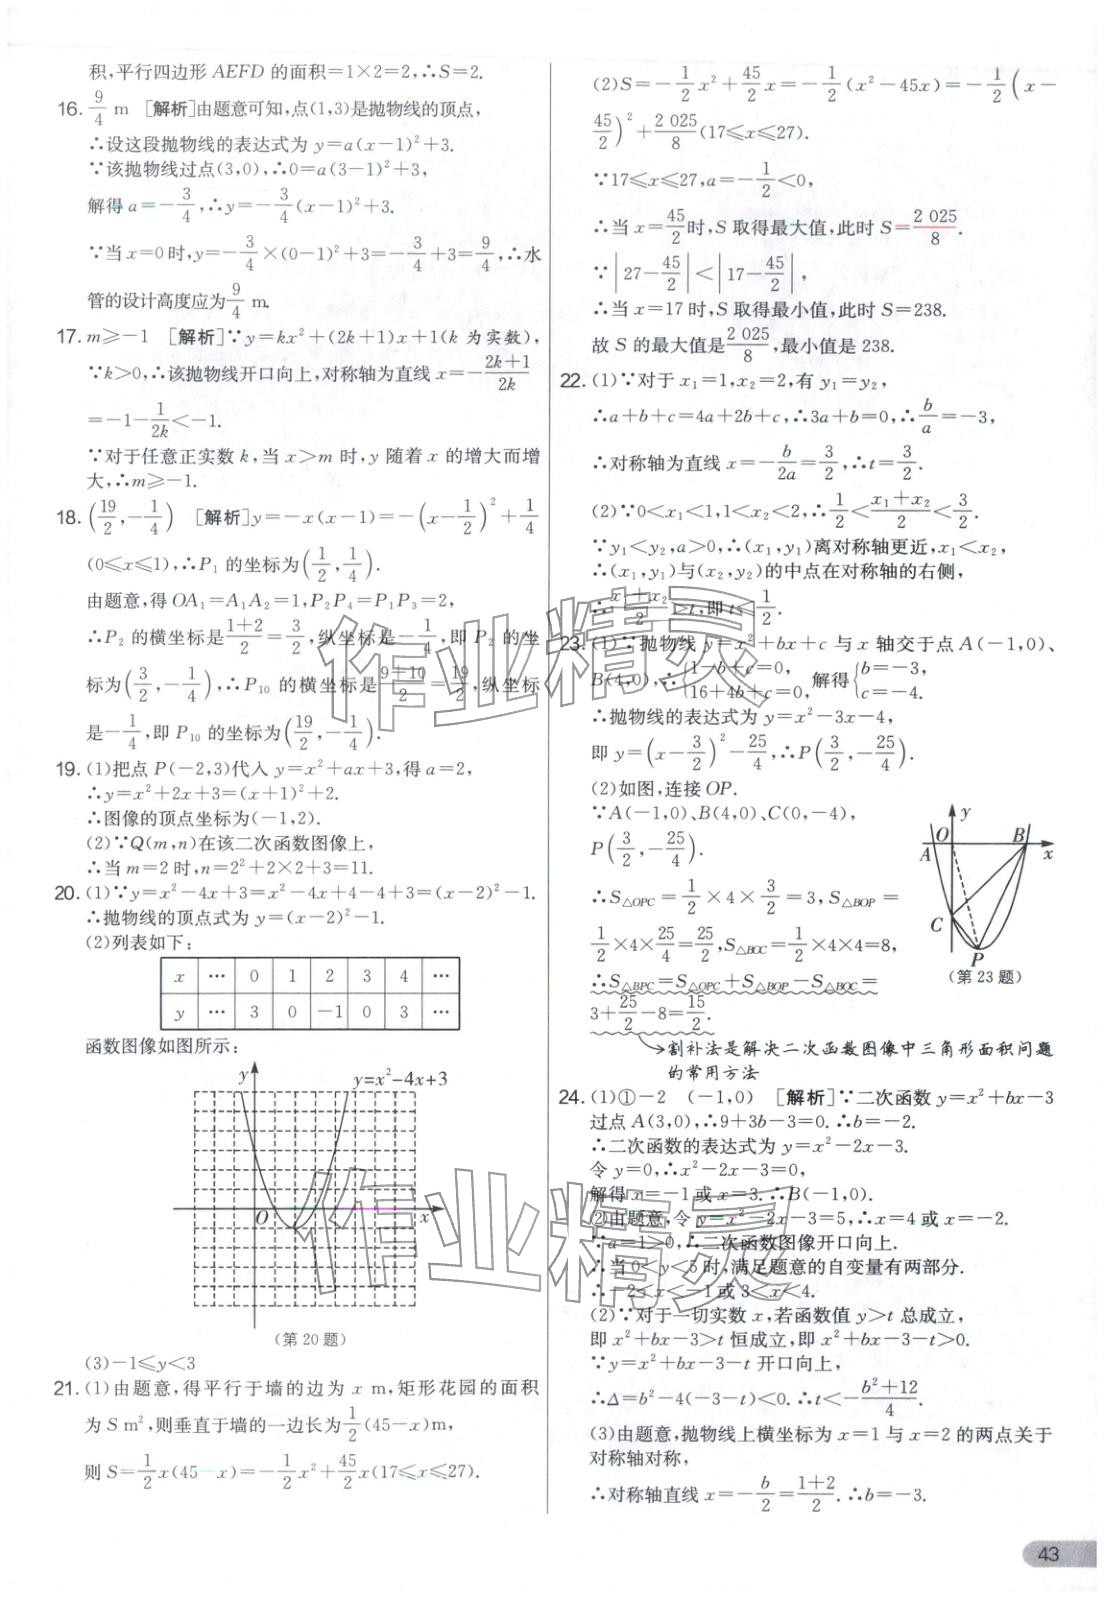 积,平行四边形 AEFD 的面积=1×2=2,∴S=2.
16. 9/4 m [解析]由题意可知,点(1,3)是抛物线的顶点,
∴设这段抛物线的表达式为 y=a(x-1)²+3.
∵该抛物线过点(3,0),∴0=a(3-1)²+3,
解得 a=-3/4,∴y=-3/4(x-1)²+3.
∵当 x=0时,y=-3/4×(0-1)²+3=-3/4+3=9/4,∴水
管的设计高度应为9/4 m.
17. m≥-1 [解析]∵y=kx²+(2k+1)x+1(k 为实数),
∵k>0,∴该抛物线开口向上,对称轴为直线 x=-(2k+1)/2k
=-1-1/2k<-1.
∵对于任意正实数 k,当 x>m 时,y 随着 x 的增大而增
大,∴m≥-1.
18. (19/2,-1/4) [解析]y=-x(x-1)=-(x-1/2)²+1/4
(0≤x≤1),∴P₁ 的坐标为(1/2,1/4).
由题意,得 OA₁=A₁A₂=1,P₂P₄=P₁P₃=2,
∴P₂ 的横坐标是(1+2)/2=3/2,纵坐标是-1/4,即 P₂ 的坐
标为(3/2,-1/4),∴P₁₀ 的横坐标是(9+10)/2=19/2,纵坐标
是-1/4,即 P₁₀ 的坐标为(19/2,-1/4).
19. (1)把点 P(-2,3)代入 y=x²+ax+3,得 a=2,
∴y=x²+2x+3=(x+1)²+2.
∴图像的顶点坐标为(-1,2).
(2)∵Q(m,n)在该二次函数图像上,
∴当 m=2 时,n=2²+2×2+3=11.
20. (1)∵y=x²-4x+3=x²-4x+4-4+3=(x-2)²-1.
∴抛物线的顶点式为 y=(x-2)²-1.
(2)列表如下:
x … 0 1 2 3 4 …
y … 3 0 -1 0 3 …
函数图像如图所示:
y y=x²-4x+3
O x
(第 20 题)
(3)-1≤y<3
21. (1)由题意,得平行于墙的边为 x m,矩形花园的面积
为 S m²,则垂直于墙的一边长为1/2(45-x)m,
则 S=1/2x(45-x)=-1/2x²+45/2x(17≤x≤27).
(2)S=-1/2x²+45/2x=-1/2(x²-45x)=-1/2(x-
45/2)²+2 025/8(17≤x≤27).
∵17≤x≤27,a=-1/2<0,
∴当 x=45/2时,S 取得最大值,此时 S=2 025/8.
∵|27-45/2|<|17-45/2|,
∴当 x=17 时,S 取得最小值,此时 S=238.
故 S 的最大值是2 025/8,最小值是 238.
22. (1)∵对于 x₁=1,x₂=2,有 y₁=y₂,
∴a+b+c=4a+2b+c,∴3a+b=0,∴b/a=-3,
∴对称轴为直线 x=-b/2a=3/2,∴t=3/2.
(2)∵0<x₁<1,1<x₂<2,∴1/2<(x₁+x₂)/2<3/2.
∵y₁<y₂,a>0,∴(x₁,y₁)离对称轴更近,x₁<x₂,
∴(x₁,y₁)与(x₂,y₂)的中点在对称轴的右侧,
∴(x₁+x₂)/2>t,即 t≤1/2.
23. (1)∵抛物线 y=x²+bx+c 与 x 轴交于点 A(-1,0)、
B(4,0),∴{1-b+c=0, 16+4b+c=0, 解得{b=-3, c=-4.
∴抛物线的表达式为 y=x²-3x-4,
即 y=(x-3/2)²-25/4,∴P(3/2,-25/4).
(2)如图,连接 OP.
∵A(-1,0)、B(4,0)、C(0,-4),
P(3/2,-25/4).
∴S△OPC=1/2×4×3/2=3,S△BOP=
1/2×4×25/4=25/2,S△BOC=1/2×4×4=8,
∴S△BPC=S△OPC+S△BOP-S△BOC=
3+25/2-8=15/2.
y
O B
A x
C
P
(第 23 题)
割补法是解决二次函数图像中三角形面积问题
的常用方法
24. (1)①-2 (-1,0) [解析]∵二次函数 y=x²+bx-3
过点 A(3,0),∴9+3b-3=0.∴b=-2.
∴二次函数的表达式为 y=x²-2x-3.
令 y=0,∴x²-2x-3=0,
解得 x=-1 或 x=3.∴B(-1,0).
②由题意,令 y=x²-2x-3=5,∴x=4 或 x=-2.
∵a=1>0,∴二次函数图像开口向上.
∴当 0<y<5 时,满足题意的自变量有两部分.
∴-2<x<-1 或 3<x<4.
(2)∵对于一切实数 x,若函数值 y>t 总成立,
即 x²+bx-3>t 恒成立,即 x²+bx-3-t>0.
∵y=x²+bx-3-t 开口向上,
∴Δ=b²-4(-3-t)<0.∴t<-(b²+12)/4.
(3)由题意,抛物线上横坐标为 x=1 与 x=2 的两点关于
对称轴对称,
∴对称轴直线 x=-b/2=(1+2)/2.∴b=-3.
作业精灵
作业精灵
43